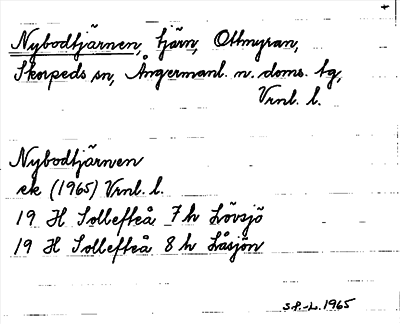 Nybodtjärnen, tjärn, Ottmyran,
Skorpeds sn, Ångermanl. n. doms. tg,
Vrnl. l.
Nybodtjärnen
ek (1965) Vrnl. l.
19 H Sollefteå 7 h Lövsjö
19 H Sollefteå 8 h Låsjön
S.P.-L. 1965